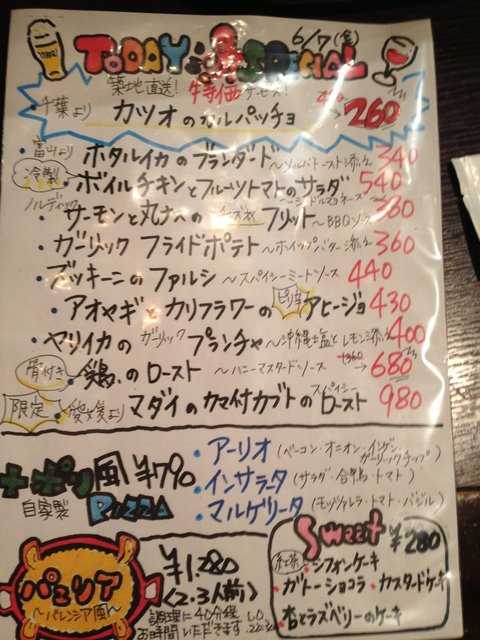 TODAY'S SPECIAL 6/7(金)
築地直送! 特価
千葉より カツオのカルパッチョ → 260
富山より ホタルイカのブランダード 340
冷製 ボイルチキンとフルーツトマトのサラダ 540
ノルディック サーモンと丸ナスのチーズ フリット ~BBQソース 380
ガーリックフライドポテト ~ホイップバター添え 360
ズッキーニのファルシ ~スパイシーミートソース 440
アオヤギとカリフラワーのピリ辛アヒージョ 430
ヤリイカのガーリックプランチャ ~沖縄島塩とレモン添え 400
骨付き 鶏ももロースト ~ハニーマスタードソース → 680
限定 愛媛より マダイのカマ付カブトのスパイシーロースト 980
ナポリ風 ¥790
自家製 PIZZA
・アーリオ(ベーコン・オニオン・インゲン ガーリックチップ)
・インサラータ(サラダ・合鴨・トマト)
・マルゲリータ(モッツァレラ・トマト・バジル)
パエリア
~バレンシア風~
¥1,280
<2.3人前>
調理に40分程
お時間いただきます L.O 22:30
Sweet ¥280
紅茶シフォンケーキ
・ガトーショコラ ・カスタードケーキ
・杏とラズベリーのケーキ